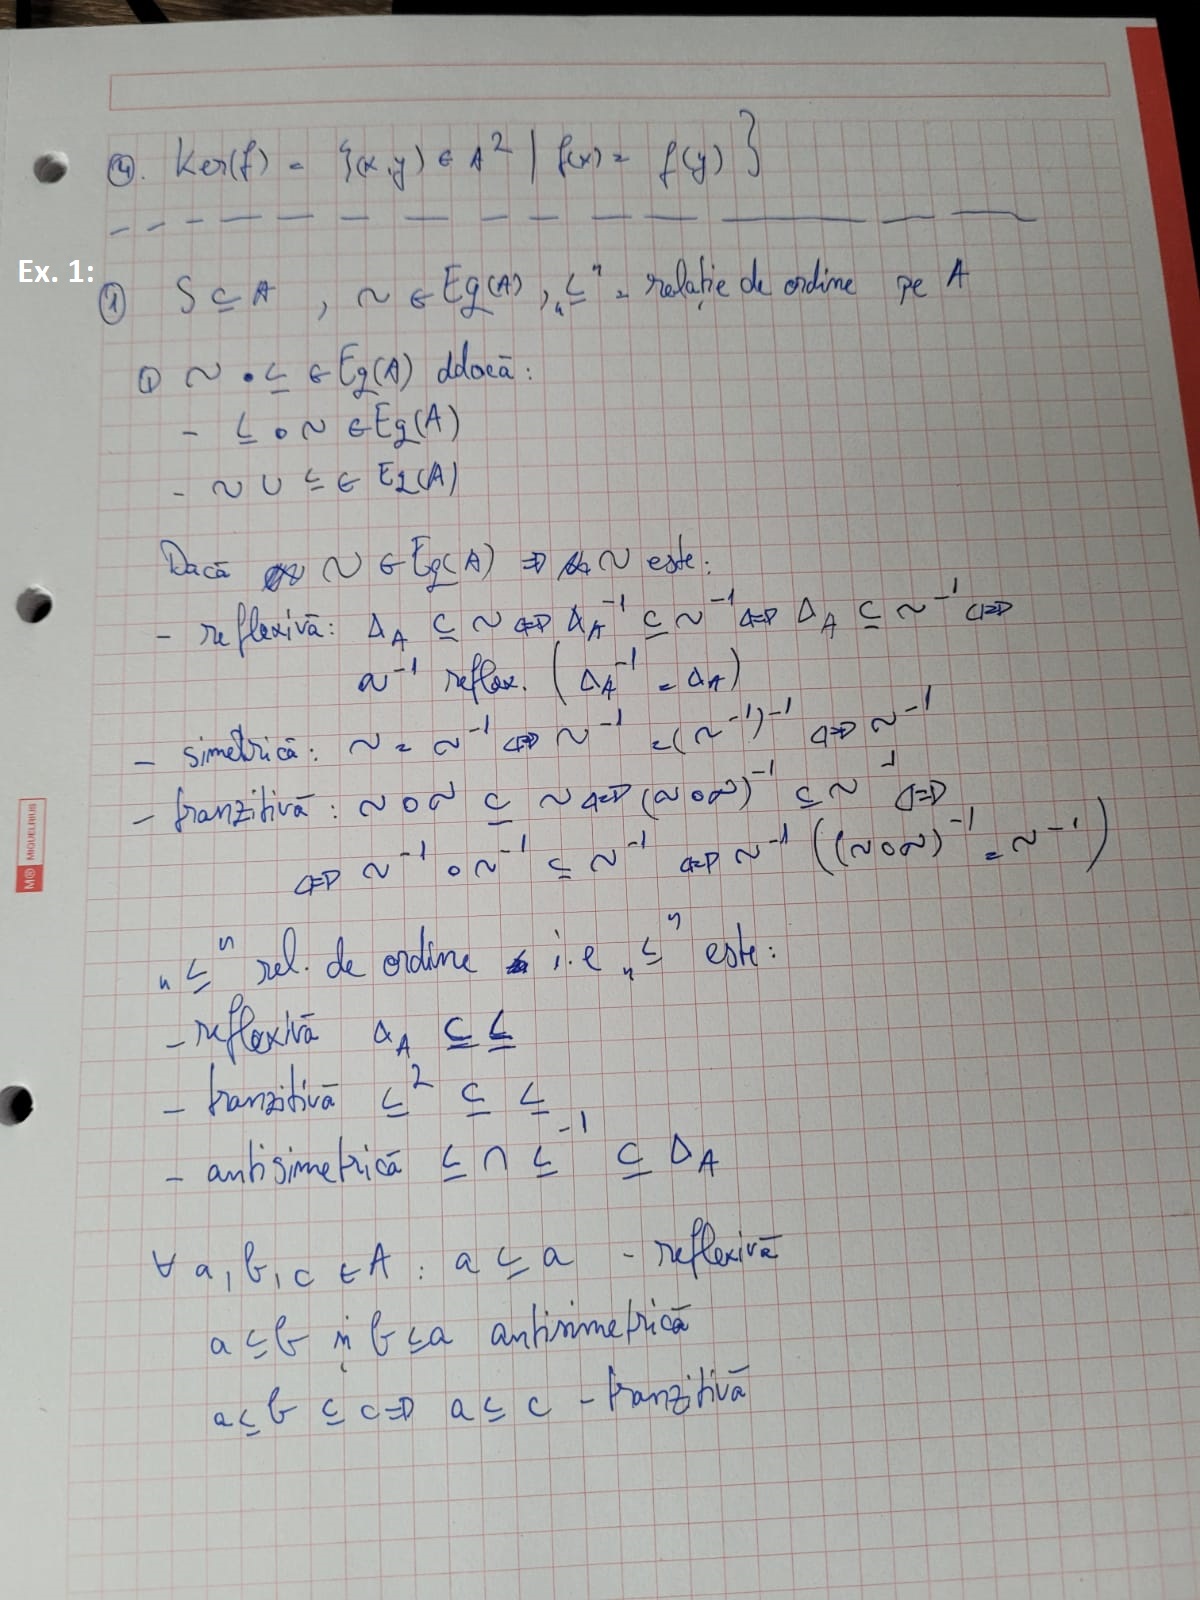 ④. Ker(f) = {(x,y) ∈ A² | f(x) = f(y)}
Ex. 1:
① S ⊆ A , ~ ∈ Eq(A), „≤" = relație de ordine pe A
① ~ • ≤ ∈ Eq(A) ddacă:
- ≤ ∘ ~ ∈ Eq(A)
- ~ ∪ ≤ ∈ Eq(A)
Dacă ~ ∈ Eq(A) ⇒ ~ este:
- reflexivă: Δ_A ⊆ ~ ⇔ Δ_A⁻¹ ⊆ ~⁻¹ ⇔ Δ_A ⊆ ~⁻¹ ⇔
~⁻¹ reflex. (Δ_A⁻¹ = Δ_A)
- simetrică: ~ = ~⁻¹ ⇔ ~⁻¹ = (~⁻¹)⁻¹ ⇔ ~⁻¹
- tranzitivă: ~ ∘ ~ ⊆ ~ ⇔ (~ ∘ ~)⁻¹ ⊆ ~⁻¹ ⇔
⇔ ~⁻¹ ∘ ~⁻¹ ⊆ ~⁻¹ ⇔ ~⁻¹ ((~ ∘ ~)⁻¹ = ~⁻¹)
„≤" rel. de ordine i.e „≤" este:
- reflexivă Δ_A ⊆ ≤
- tranzitivă ≤² ⊆ ≤
- antisimetrică ≤ ∩ ≤⁻¹ ⊆ Δ_A
∀ a, b, c ∈ A : a ≤ a - reflexivă
a ≤ b și b ≤ a antisimetrică
a ≤ b ≤ c ⇒ a ≤ c - tranzitivă
M® MIQUELRIUS